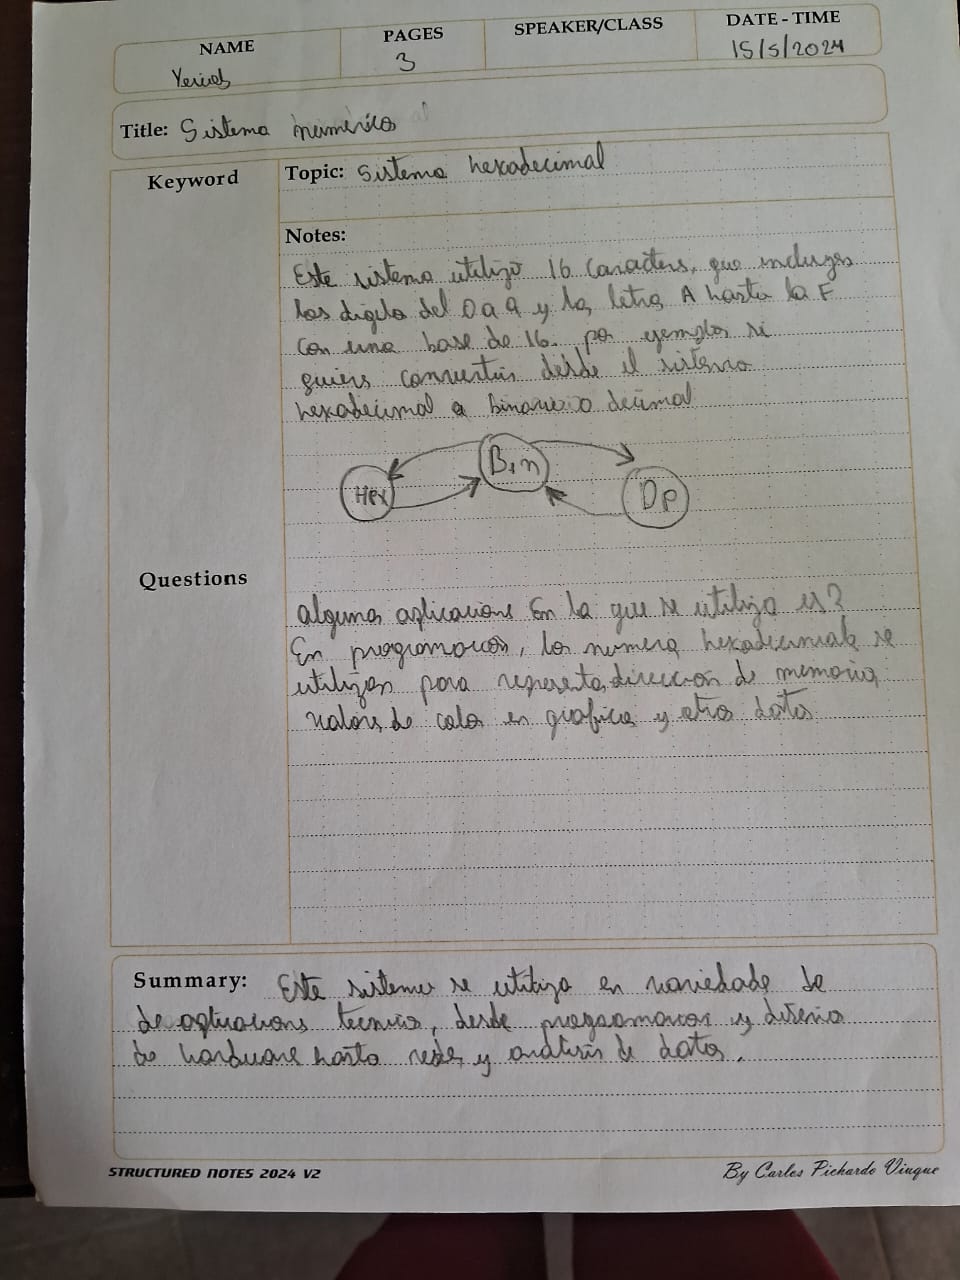 NAME PAGES SPEAKER/CLASS DATE-TIME
3 15/5/2024
Title: Sistema numerico
Keyword
Topic: Sistema hexadecimal
Notes:
Este sistema utilizo 16 caracters, que incluyes
los digito del 0 a 9 y la letra A hasta la F
con una base de 16. por ejemplos si
quiers convertir desde el sistema
hexadecimal a binario o decimal
Hex Bin De
Questions
alguna aplicacions En la que se utiliza es?
En programacion, los numero hexadecimals se
utilizan para representa direccion de memoria,
valors de color en grafica y otros datos
Summary: Este sistema se utiliza en variedade de
de aplicacions tecnica, desde programacion y diseño
de hardware hasta redes y analisis de datos.
STRUCTURED NOTES 2024 V2
By Carlos Pichardo Viuque